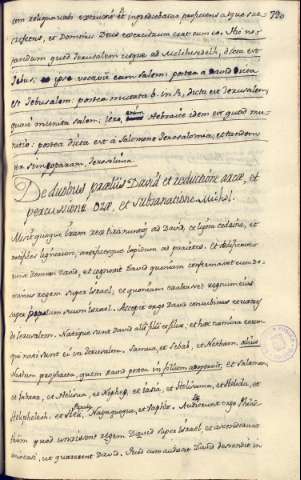 720
et Dominus Deus exercituum erat cum eo. Hic no-
tandum quod Jerusalem usque ad Melchisedech, dicta est
Jebus: ipse vocavit eam Salem: postea a David dicta
est Jebusalem: postea mutata b. in R, dicta est Jerusalem,
quasi munita salem; Jera, enim Hebraice idem est quod mu-
nitio: postea dicta est a Salomone Jerosolomia, et tandem
per syncopam, Jerosolima
De duobus praeliis David et reductione arcae, et
percussione Ozae, et subsanatione Michol.
Misit quoque Hiram rex tiri nuncios ad David, et ligna cedrina, et
artifices lignorum, artificesque lapidum ad parietes. Et aedificaverunt
domum David, et cognovit David quoniam confirmavit eum do-
minus regem super Israel, et quoniam exaltavit regnum eius
super populum suum Israel. Accepit ergo David concubinas et uxores
de Jerusalem. Natique sunt David alii filii et filiae, et haec nomina eorum
qui nati sunt ei in Jerusalem. Samua, et Sobab, et Nathan, alius
Nathan propheta, quem David in filium, et Salomon,
et Jebaar, et Helisua, et Nepheg, et Japia, et Helisama, et Helida, et
Heliphelech. Audierunt ergo Philis-
thiim quod unxissent regem David super Israel, et ascenderunt
universi, ut quaererent David. Quod cum audisset David descendit in